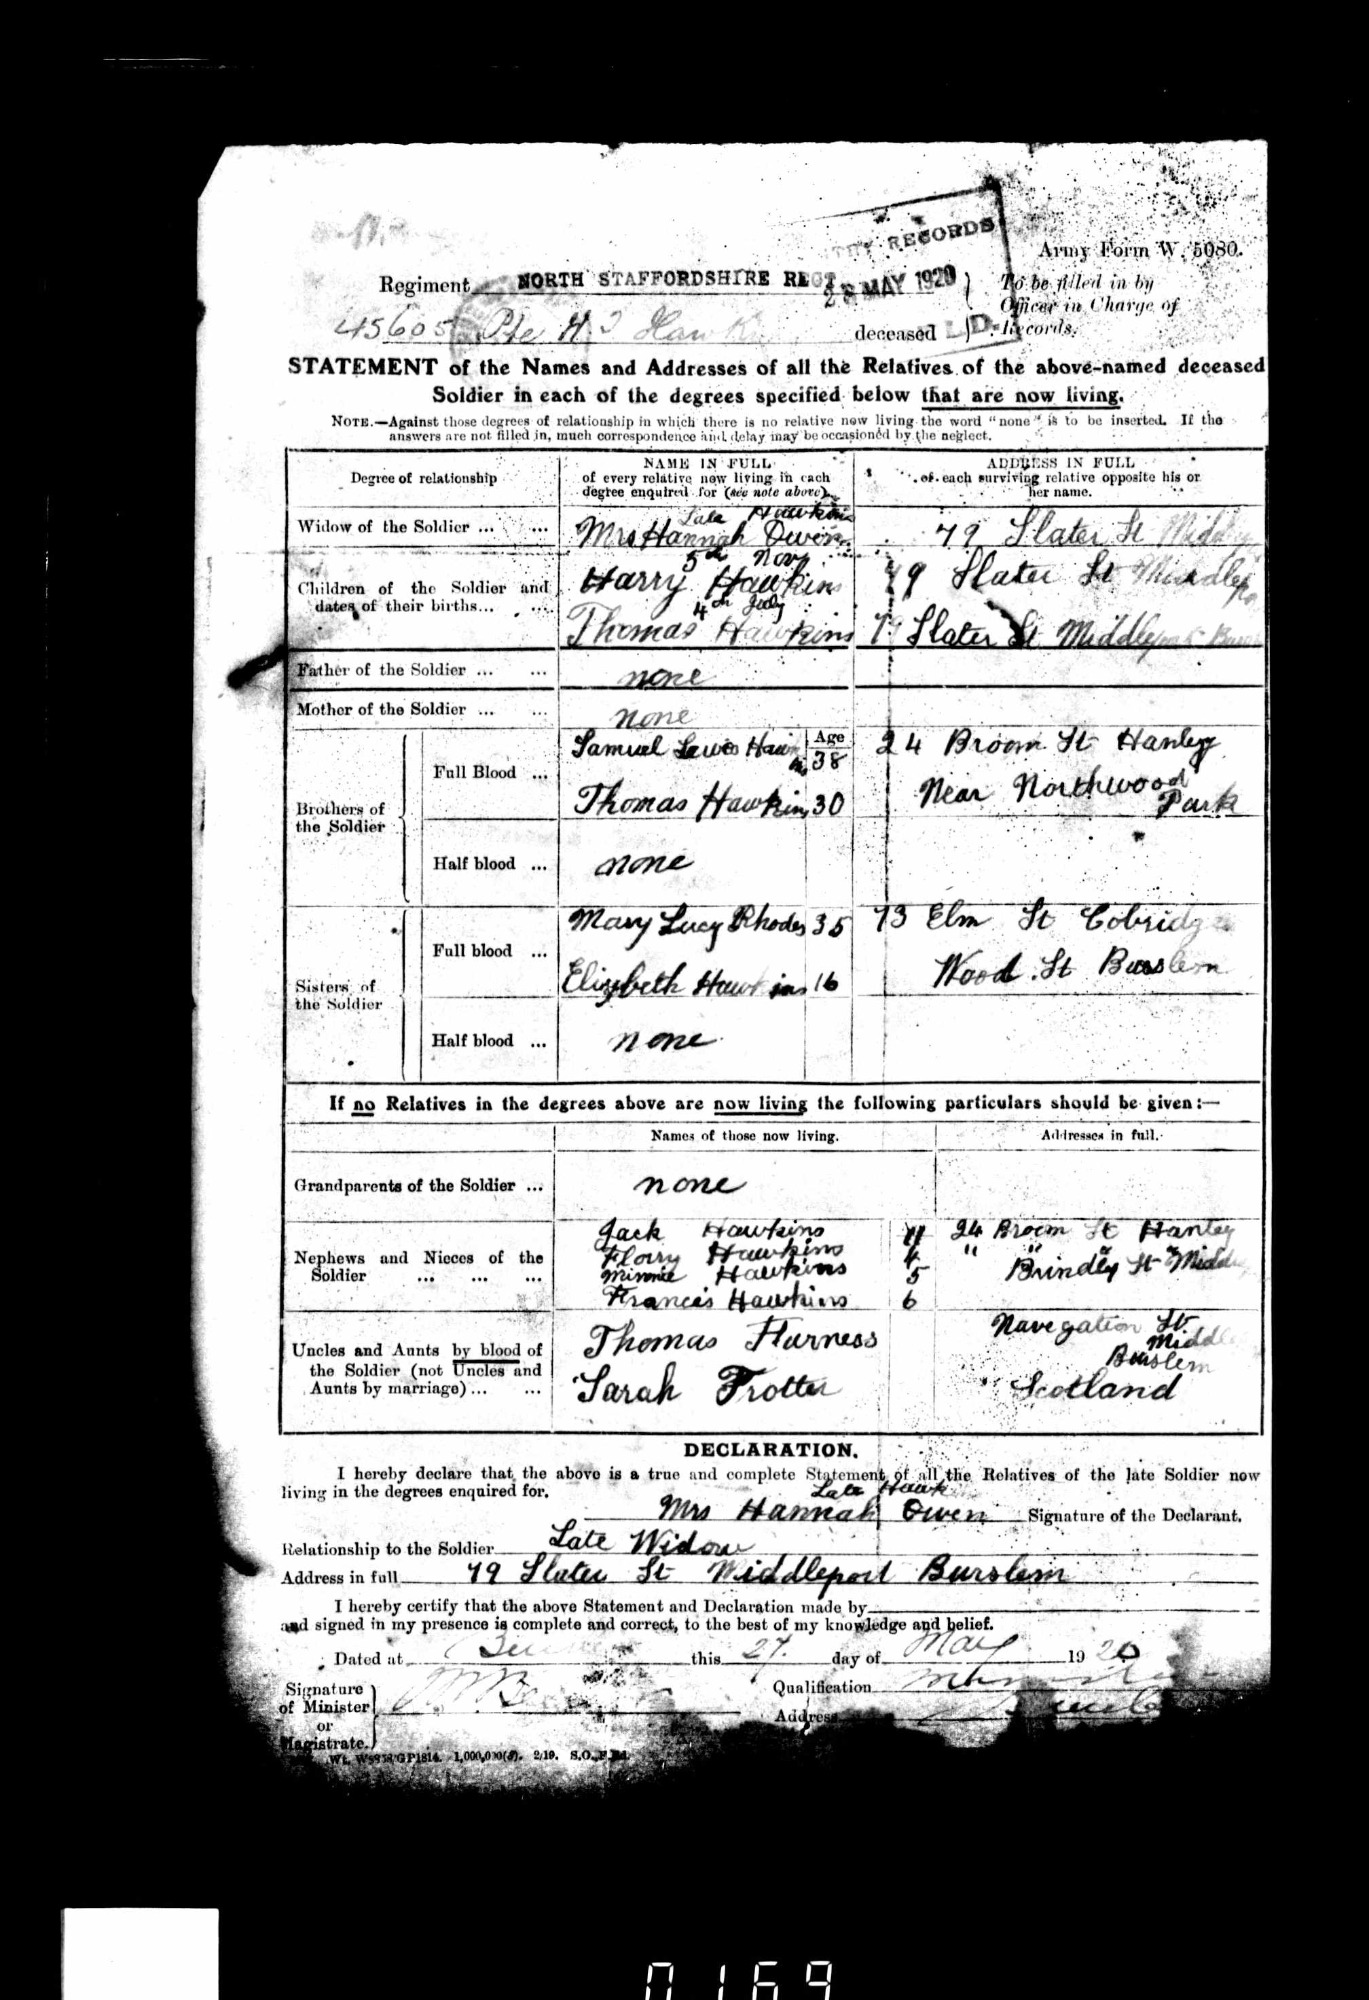 RECORDS
Army Form W. 5080.
Regiment NORTH STAFFORDSHIRE REGT
28 MAY 1920
To be filled in by
Officer in Charge of
Records.
45605 Pte H J Hawkins deceased
STATEMENT of the Names and Addresses of all the Relatives of the above-named deceased
Soldier in each of the degrees specified below that are now living.
NOTE.—Against those degrees of relationship in which there is no relative now living the word "none" is to be inserted. If the
answers are not filled in, much correspondence and delay may be occasioned by the neglect.
Degree of relationship
NAME IN FULL
of every relative now living in each
degree enquired for (see note above).
ADDRESS IN FULL
of each surviving relative opposite his or
her name.
Late Hawkins
Widow of the Soldier ... ... Mrs Hannah Owen 79 Slater St
5th Nov
Children of the Soldier and
dates of their births... ...
Harry Hawkins 79 Slater St Middlepo
4th July
Thomas Hawkins 79 Slater St Middleport
Father of the Soldier ... ... none
Mother of the Soldier ... ... none
Brothers of
the Soldier
Full Blood ...
Age
Samuel Lewis Hawkins 38 24 Broom St Hanley
Near Northwood
Park
Thomas Hawkins 30
Half blood ... none
Sisters of
the Soldier
Full blood ...
Mary Lucy Rhodes 35 73 Elm St Cobridge
Elizabeth Hawkins 16 Wood St Burslem
Half blood ... none
If no Relatives in the degrees above are now living the following particulars should be given:—
Names of those now living.
Addresses in full.
Grandparents of the Soldier ... none
Nephews and Nieces of the
Soldier ... ... ...
Jack Hawkins 11 24 Broom St Hanley
Florry Hawkins 4 " " " "
Minnie Hawkins 5 Brindley St Middle
Francis Hawkins 6
Uncles and Aunts by blood of
the Soldier (not Uncles and
Aunts by marriage)... ...
Thomas Furness Navegation St
Middle
Burslem
Sarah Trotter Scotland
DECLARATION.
I hereby declare that the above is a true and complete Statement of all the Relatives of the late Soldier now
living in the degrees enquired for.
Late Hawk
Mrs Hannah Owen Signature of the Declarant.
Relationship to the Soldier Late Widow
Address in full 79 Slater St Middleport Burslem
I hereby certify that the above Statement and Declaration made by
and signed in my presence is complete and correct, to the best of my knowledge and belief.
Dated at this 27. day of May 1920
Signature
of Minister
or
Magistrate.
Qualification
Address
1,000,000 2/19.
0169